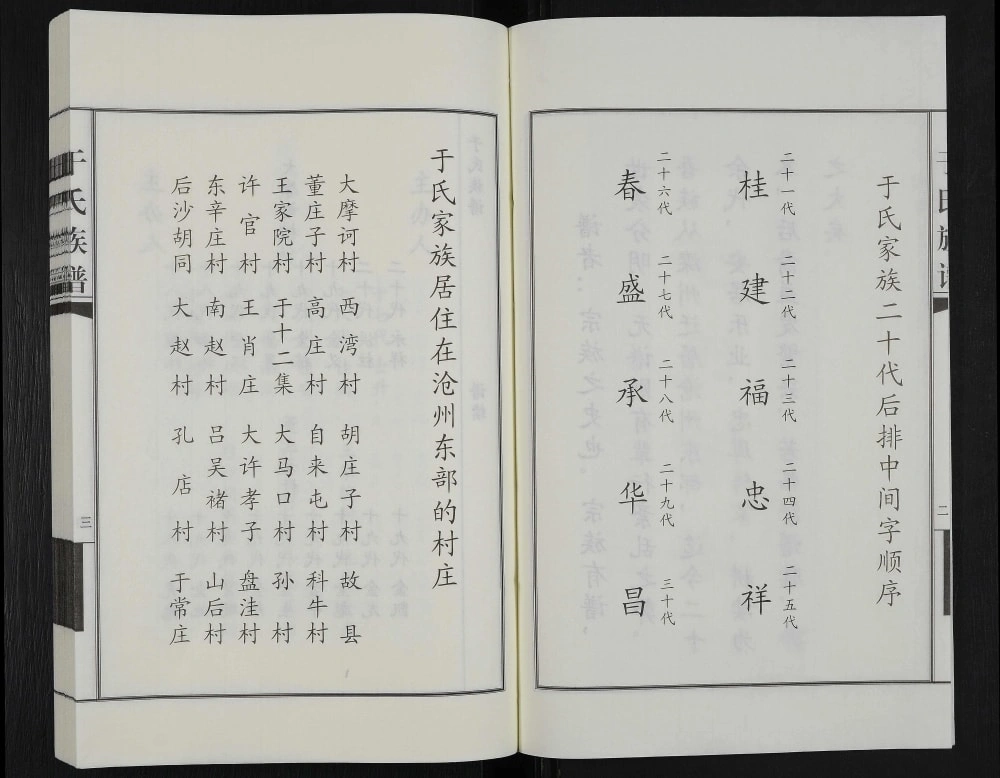 于氏家族二十代后排中间字顺序
二十一代 二十二代 二十三代 二十四代 二十五代
桂 建 福 忠 祥
二十六代 二十七代 二十八代 二十九代 三十代
春 盛 承 华 昌
二
于氏家族居住在沧州东部的村庄
大摩诃村 西湾村 胡庄子村 故县
董庄子村 高庄村 自来屯村 科牛村
王家院村 于十二集 大马口村 孙村
许官村 王肖庄 大许孝子 盘洼村
东辛庄村 南赵村 吕吴褚村 山后村
后沙胡同 大赵村 孔店村 于常庄
于氏族谱
三